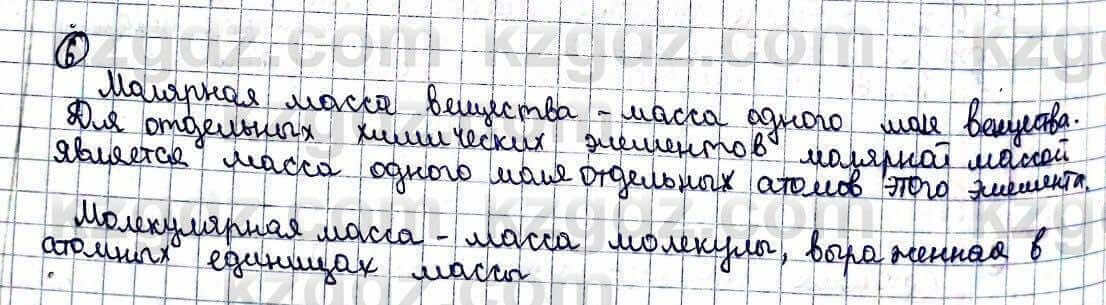 6
Молярная масса вещества - масса одного моля вещества.
Для отдельных химических элементов молярной массой
является масса одного моля отдельных атомов этого элемента.
Молекулярная масса - масса молекулы, выраженная в
атомных единицах массы